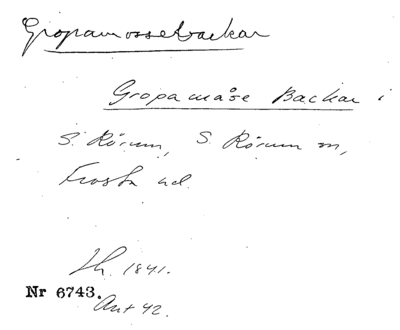 Gropamossebackar
Gropamåse Backar i
S. Rörum, S. Rörum sn,
Frosta hd.
Lh. 1841.
Nr 6743.
Ant 42.